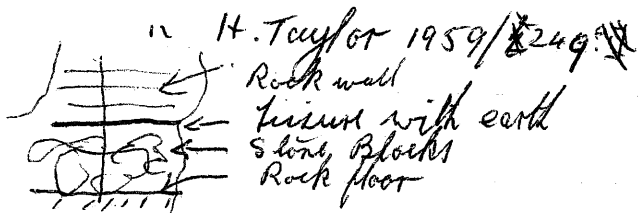 " H. Taylor 1959/249
Rock wall
Fissure with earth
Stone Blocks
Rock floor